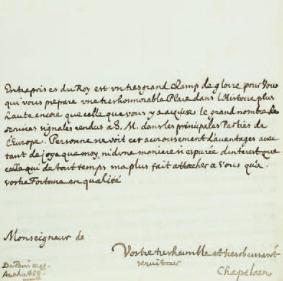 Entreprises du Roy est un tres grand Champ de gloire pour Vous
qui vous prepare une tres honnorable Place dans l'Histoire plus
haute encore que celle que vous y a acquise le grand nombre de
services signalés rendus a S. M. dans les principales Parties de
l'Europe. Personne ne voit cet accroissement d'auantages auec
tant de joye que moy, ni d'vne maniere si epurée d'interest que
celle qui de tout temps m'a plus fait attacher a Vous qu'a
vostre Fortune en qualité
Monseigneur de
Vostre tres humble et tres obeissant
serviteur
Chapelain
De Paris